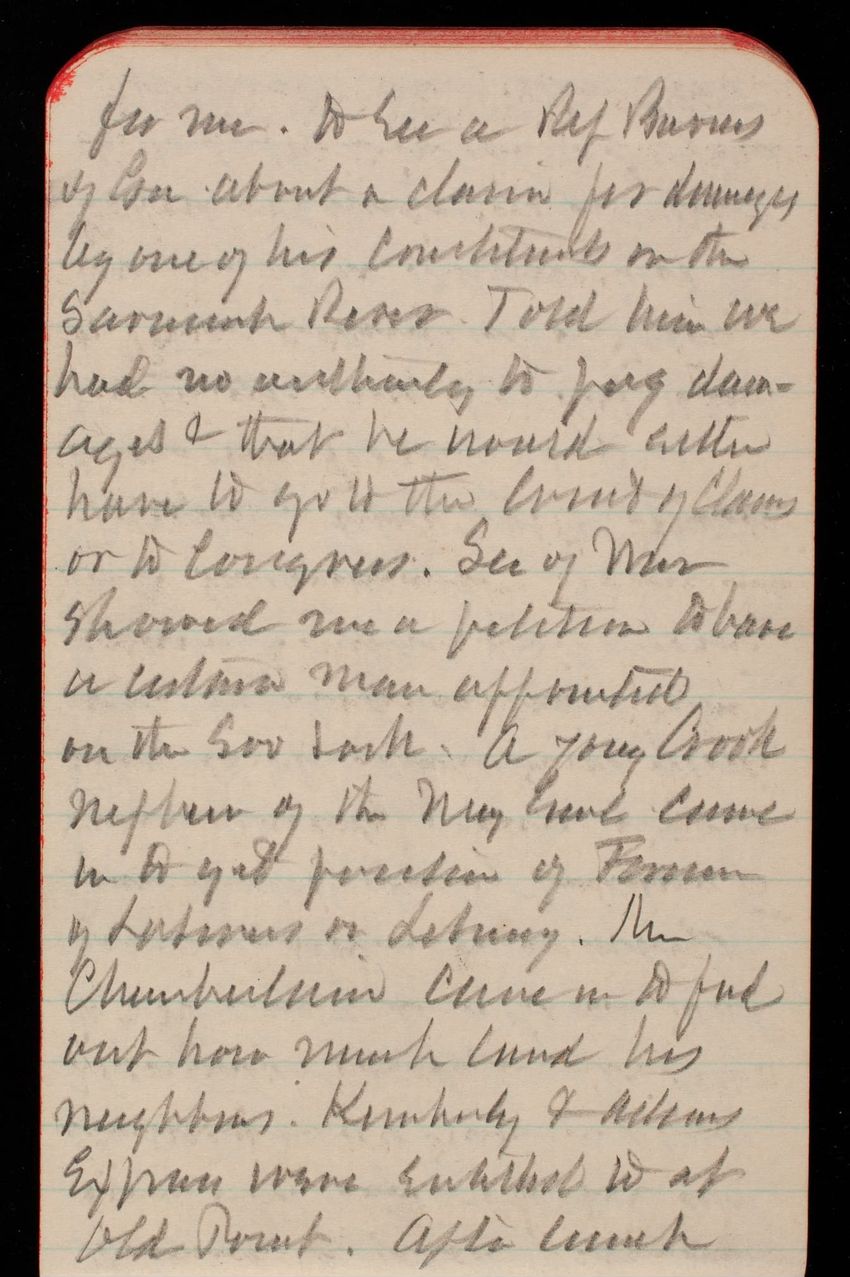 for me. to see a Rep Barnes
of Geo about a claim for damages
by one of his Constituents on the
Savannah River. Told him we
had no authority to pay dam-
ages & that he would either
have to go to the Court of Claims
or to Congress. Sec of War
showed me a petition to have
a certain man appointed
on the Soo Lock. A young Crook
Nephew of the came
in to get position of Foreman
of Laborers or. Mr
Chamberlain came in to find
out how much land his
neighbors. Kimberly & Adams
Express were entitled to at
Old Point. After lunch